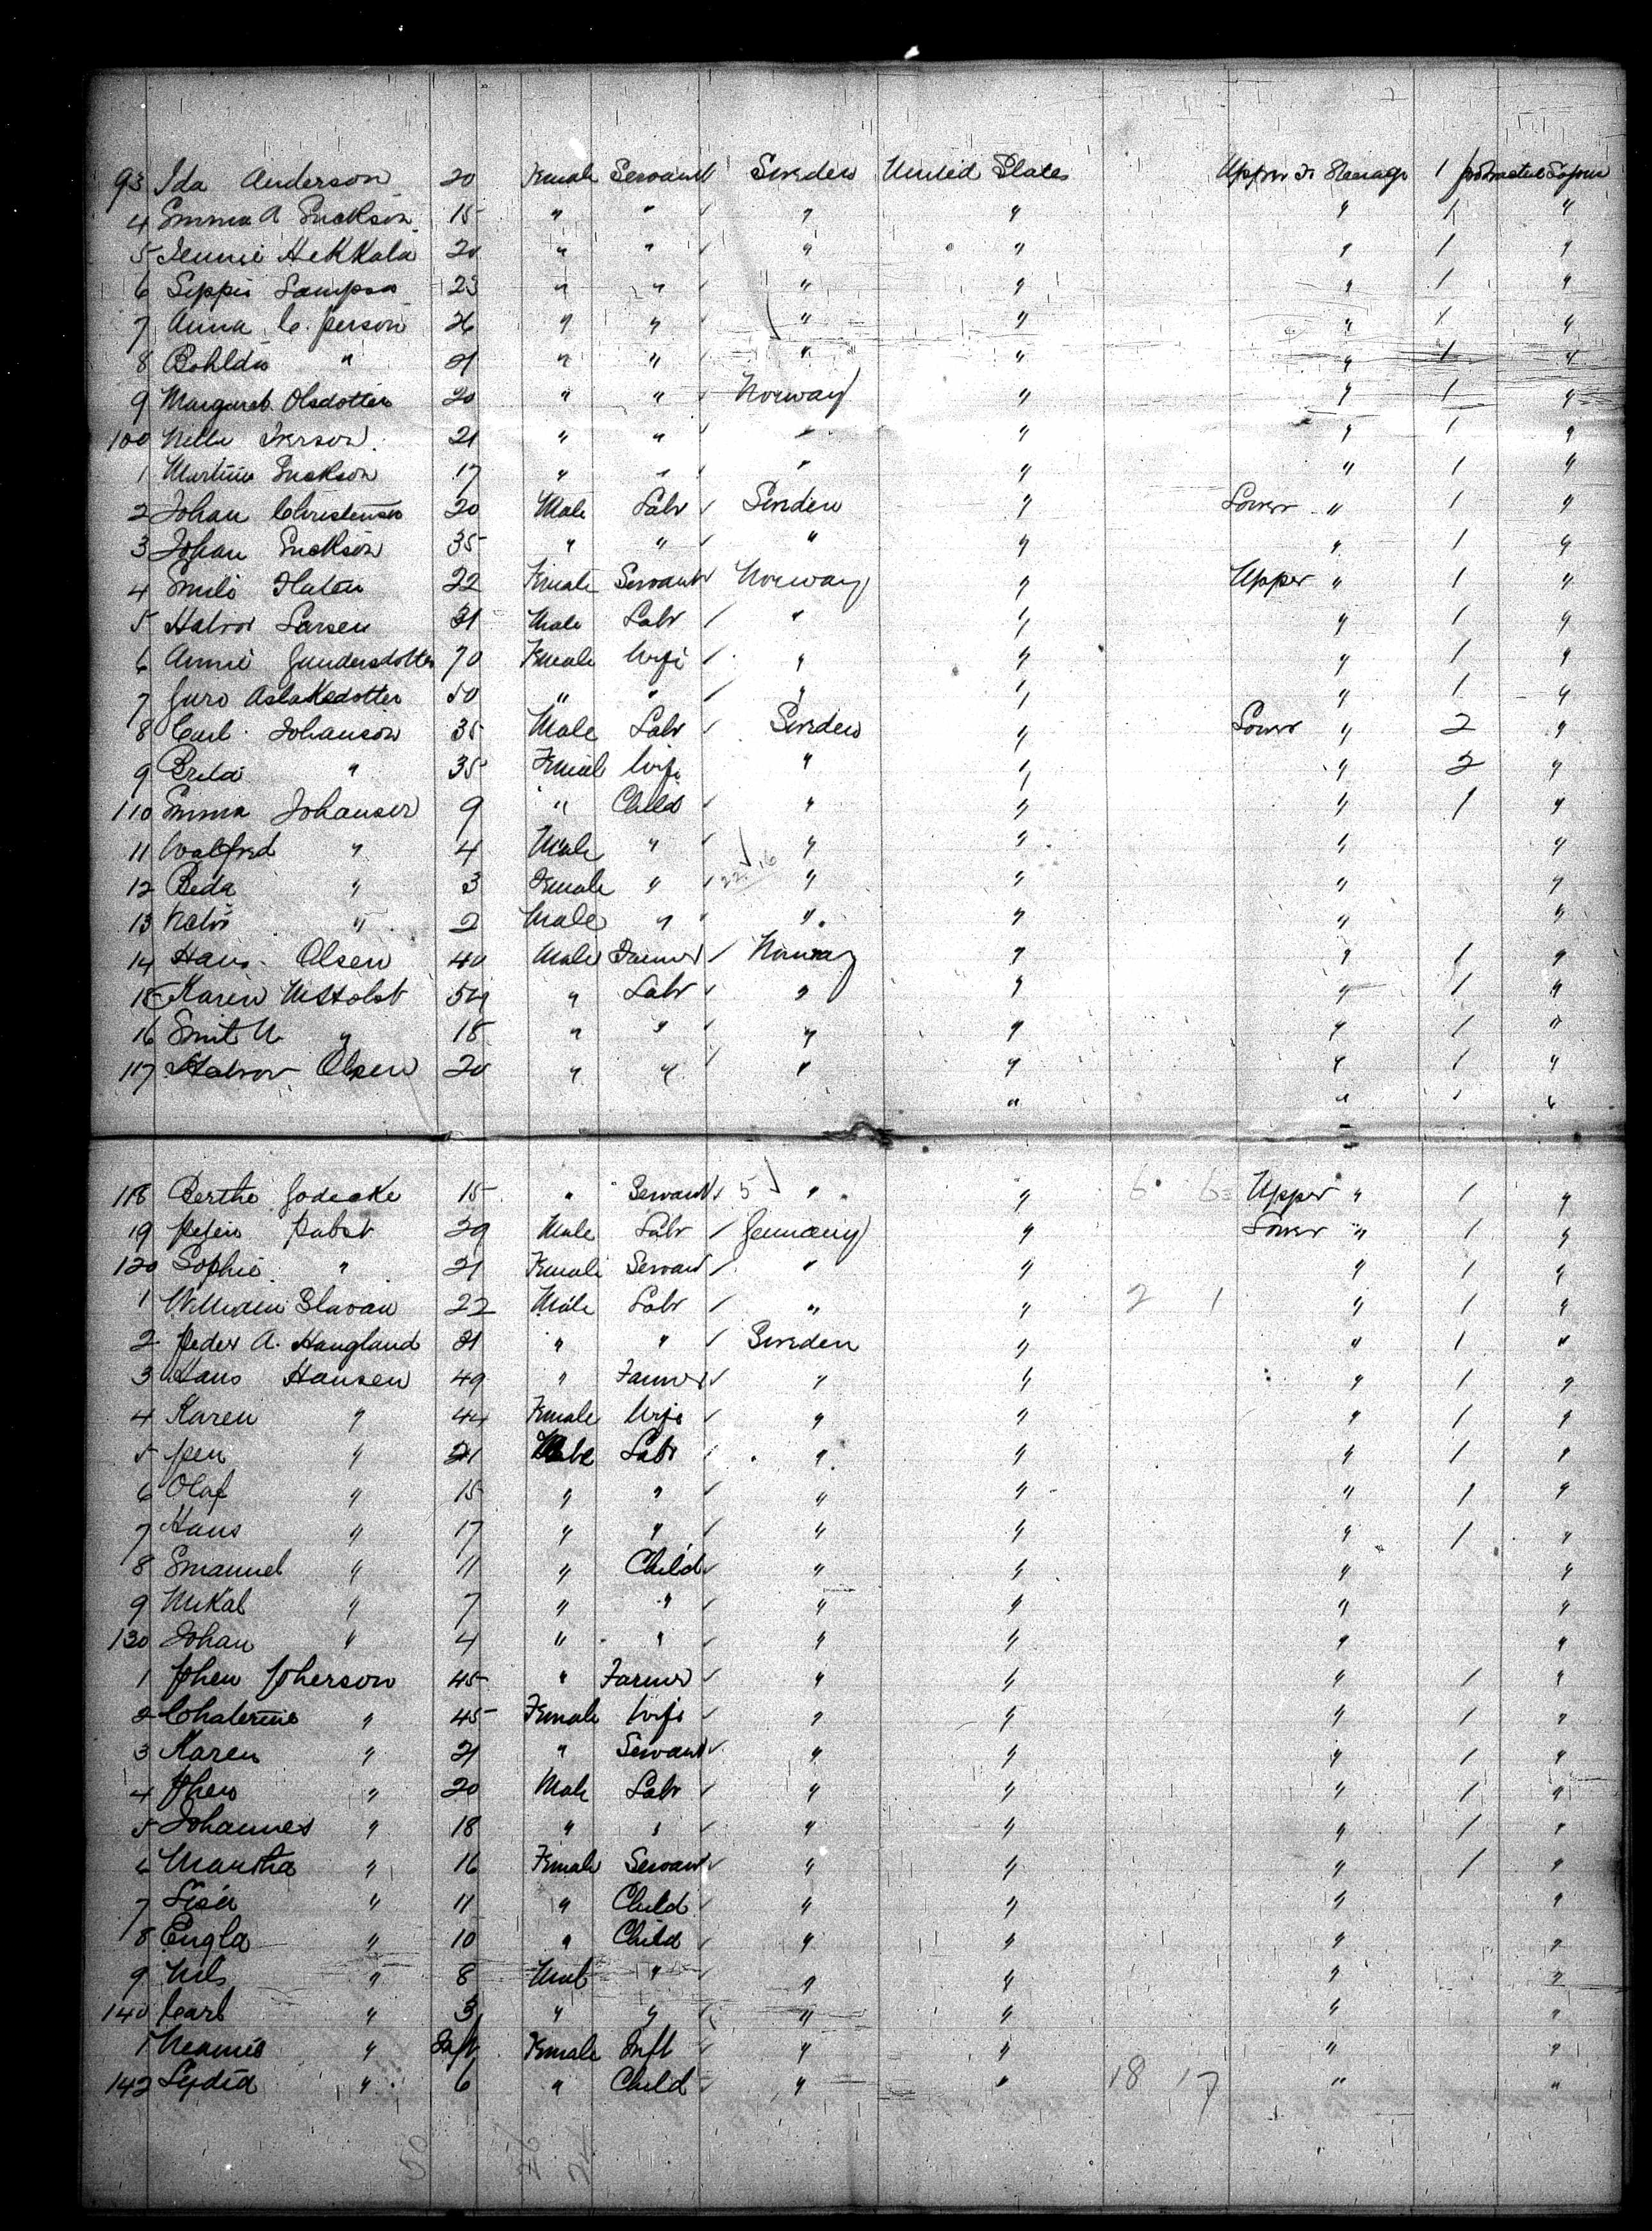 93 Ida Anderson 20 Female Servant Sweden United States Upper St Steerage 1 protracted Sojourn
4 Emma A Erickson 15 " " " " " 1 "
5 Jennie Hekkala 20 " " " " " 1 "
6 Seppio Sampsa 23 " " " " " 1 "
7 Anna C. Person 26 " " " " " 1 "
8 Bohlda " 21 " " " " " 1 "
9 Margaret Olsdotter 20 " " Norway " " 1 "
100 Nelle Iverson 21 " " " " " 1 "
1 Martine Erickson 17 " " " " " 1 "
2 Johan Christensen 20 Male Labr Sweden " Lower " 1 "
3 Johan Erickson 35 " " " " " 1 "
4 Emile Flaten 22 Female Servant Norway " Upper " 1 "
5 Halvor Larsen 31 Male Labr " " " 1 "
6 Annie Gundersdotter 70 Female Wife " " " 1 "
7 Guro Aslaksdotter 50 " " " " " 1 "
8 Carl Johanson 35 Male Labr Sweden " Lower " 2 "
9 Breta " 35 Female Wife " " " 2 "
110 Emma Johanson 9 " Child " " " 1 "
11 Walfred " 4 Male " " " " "
12 Beda " 3 Female " 22 16 " " " "
13 " 2 Male " " " " "
14 Hans Olsen 40 Male Farmer Norway " " 1 "
15 Karin M Holst 54 " Labr " " " 1 "
16 Emit N. " 18 " " " " " 1 "
117 Halvor Olsen 20 " " " " " 1 "
" " ' "
118 Berthe Godeake 15 " Servant 5 " " 6 6 Upper " 1 "
19 Pabst 29 Male Labr Germany " Lower " 1 "
120 Sophie " 21 Female Servant " " " 1 "
1 William Slavan 22 Male Labr " " 2 1 " 1 "
2 Peder A. Haugland 21 " " Sweden " " 1 "
3 Hans Hansen 49 " Farmer " " " 1 "
4 Karen " 44 Female Wife " " " 1 "
5 Jen " 21 Male Labr " " " 1 "
6 Olaf " 15 " " " " " 1 "
7 Hans " 17 " " " " " 1 "
8 Emanuel " 11 " Child " " " "
9 Mikal " 7 " " " " " "
130 Johan " 4 " " " " " "
1 Jhen Jherson 45 " Farmer " " " 1 "
2 Chaterine " 45 Female Wife " " " 1 "
3 Karen " 21 " Servant " " " 1 "
4 Jhen " 20 Male Labr " " " 1 "
5 Johannes " 18 " " " " " 1 "
6 Martha " 16 Female Servant " " " 1 "
7 Lisa " 11 " Child " " " "
8 Engla " 10 " Child " " " "
9 Nils " 8 Male " " " " "
140 Carl " 3 " " " " " "
1 " Inft Female Inft " " " "
142 Lydia " 6 " Child " " 18 17 " "
50 26 24